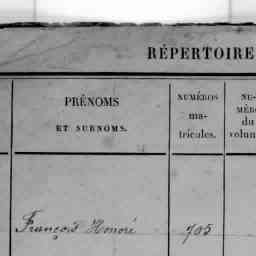 RÉPERTOIRE
PRÉNOMS
ET SURNOMS.
NUMÉROS
ma-
tricules.
NU-
MÉRO
du
volum
François Honoré
705